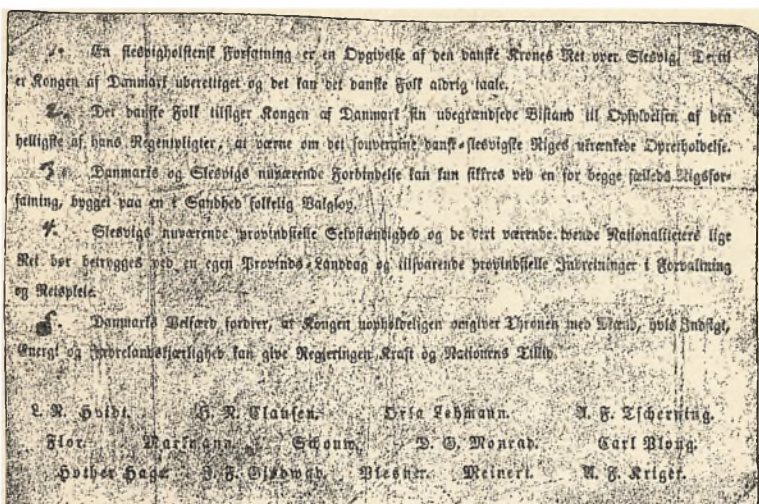 1. En slesvigholstensk Forfatning er en Opgivelse af den danske Krones Ret over Slesvig. Dertil
er Kongen af Danmark uberettiget og det kan det danske Folk aldrig taale.
2. Det danske Folk tilsiger Kongen af Danmark sin ubegrændsede Bistand til Opfyldelsen af den
helligste af hans Regentpligter, at værne om det souveraine dansk-slesvigske Riges ukrænkede Opretholdelse.
3. Danmarks og Slesvigs nuværende Forbindelse kan kun sikkres ved en for begge fælleds Rigsfor-
fatning, bygget paa en i Sandhed folkelig Valglov.
4. Slesvigs nuværende provindsielle Selvstændighed og de vert værende tvende Nationaliteters lige
Ret bør betrygges ved en egen Provinds-Landdag og tilsvarende provindsielle Indretninger i Forvaltning
og Retspleie.
5. Danmarks Velfærd fordrer, at Kongen uopholdeligen omgiver Thronen med Mænd, hvis Indsigt,
Energi og Fædrelandskjærlighed kan give Regjeringen Kraft og Nationens Tillid.
L. N. Hvidt. H. N. Clausen. Orla Lehmann. A. F. Tscherning.
Flor. Markmann. Schouw. D. G. Monrad. Carl Ploug.
Hother Hage. J. F. Gjødwad. Plesner. Meinert. A. F. Kriger.